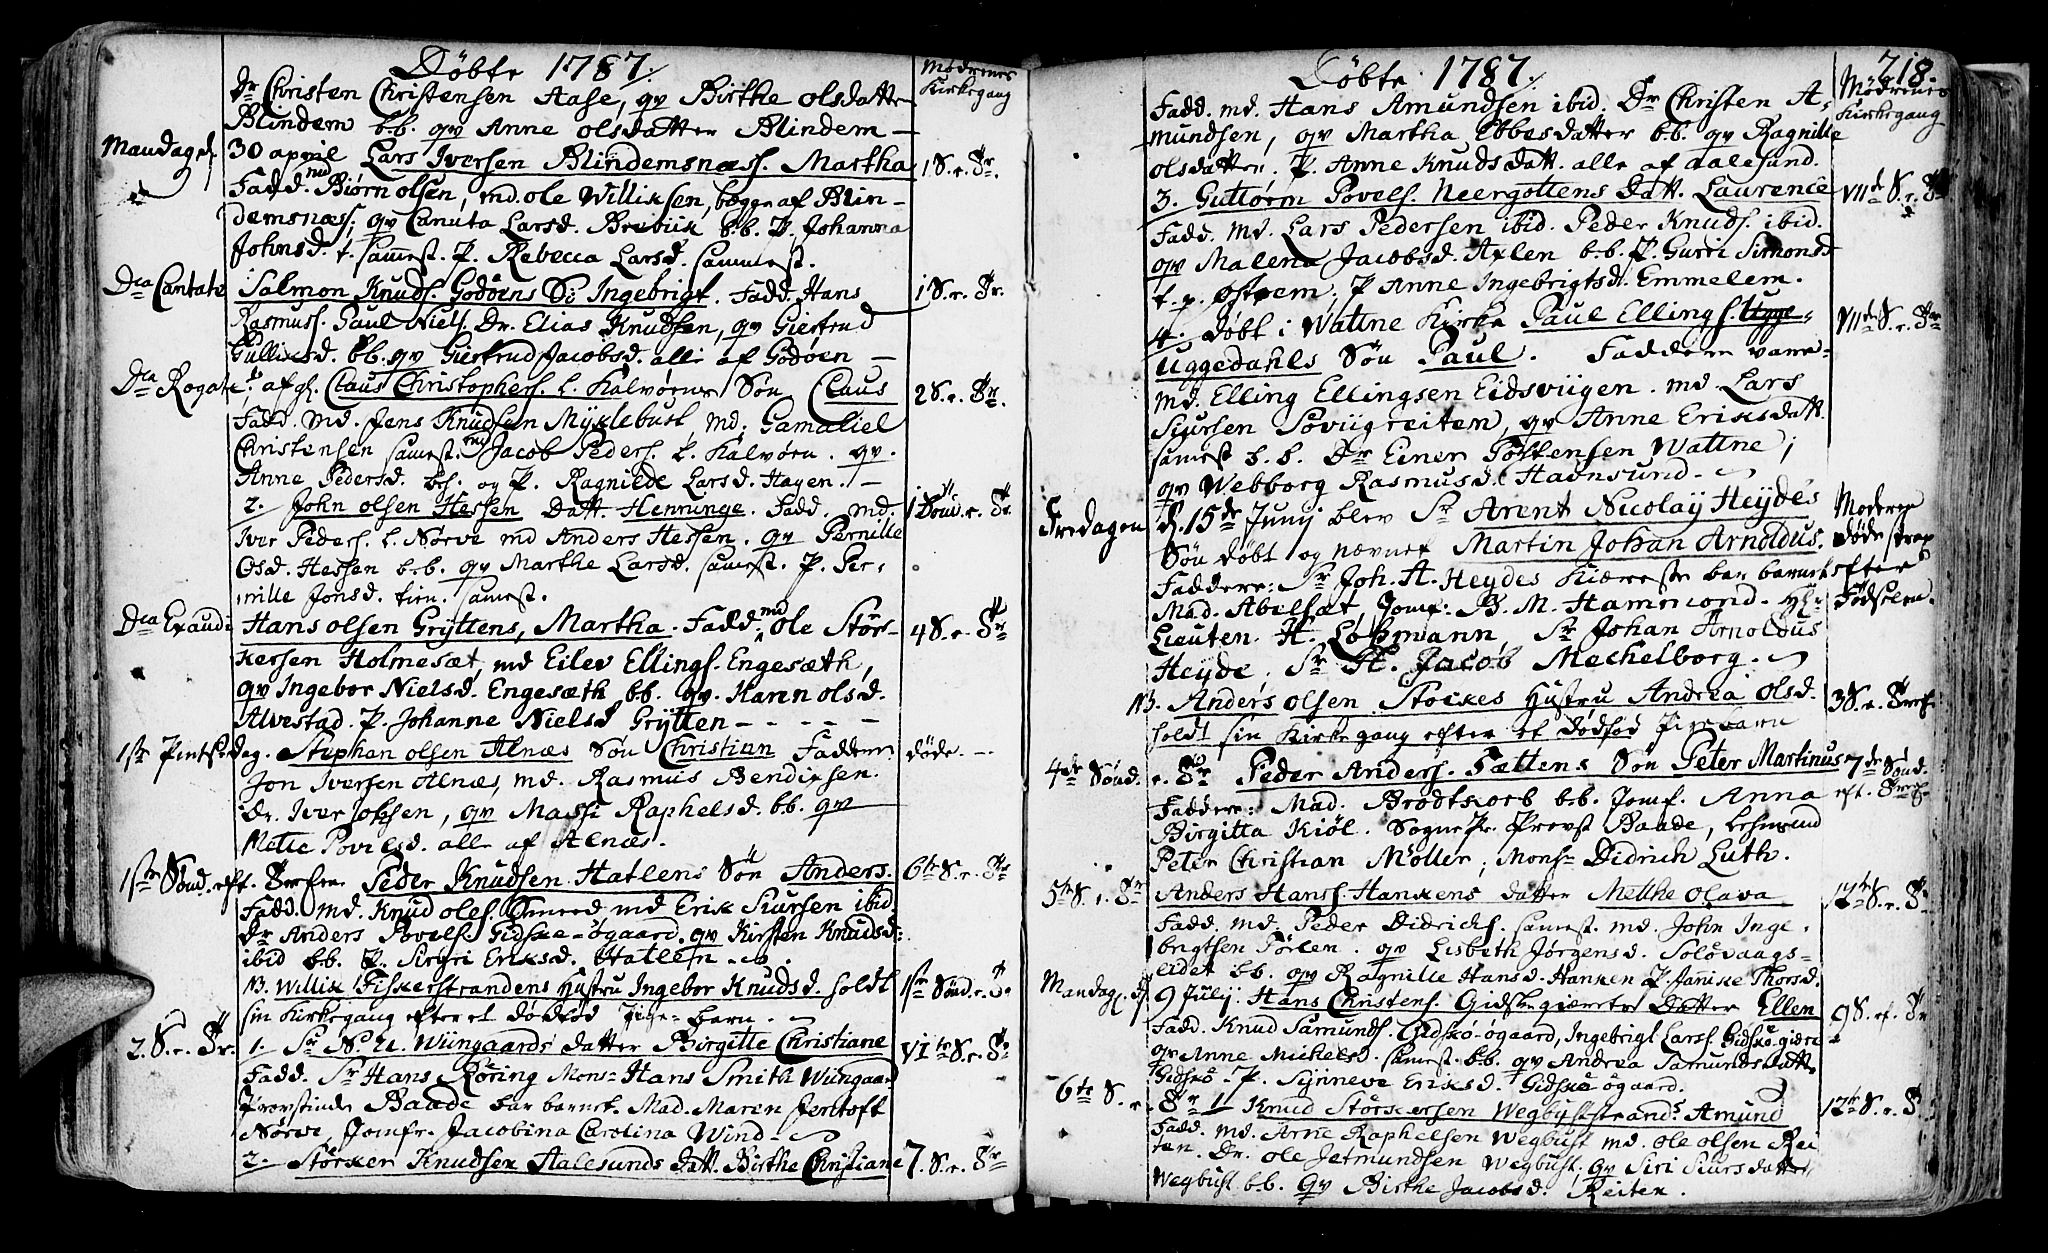 Döbte 1787.
Mödrenes
Kirkegang
Dr Christen Christensen Aase, qv Birthe olsdatter
Blindem b.b. qv Anne olsdatter Blindem —
Mandag d. 30 april Lars Iversen Blindemsnæss. Martha 1 S. e. Tr.
Fadd. md Biørn olsen, md. ole Williksen, begge af Blin-
demsnæss, qv Canuta Larsd. Brebiik b.b. P. Johanna
Johnsd. t. samest. P. Rebecca Larsd. sammest.
Dca Cantate Salmon Knuds. Godöens S: Ingebrigt. Fadd. Hans 1 S. e. Tr.
Rasmuss. Paul Niels. Dr. Elias Knudsen, qv Giertrud
Gulliksd. b.b. qv Giertrud Jacobsd. alle af Godöen —
Dca Rogate, Claus Christophers. t. Kalvörens Sön Claus 2 S. e. Tr.
Fadd. md. Jens Knudsen Myklebust, md. Gamaliel
Christensen samest. md Jacob Peders. t. Kalvöen. qv.
Anne Pedersd. og P. Ragnilde Larsd. Hagen. —
2. John olsen Hessen Datt. Henninge. Fadd. md. 1 Söud. e. Tr.
Iver Peders. t. Nörve md Anders Hessen. qv Pernille
Osd. Hessen b.b. qv Marthe Larsd. samest. P. Per-
nille Jonsd. tien. samest.
Dca Exaudi Hans olsen Gryttens, Martha. Fadd. md ole Störs- 4 S. e. Tr
kersen Holmesæt, md Eilev Ellings. Engesæth,
qv Ingebor Nielsd. Engesæth b.b. qv. Karen olsd.
Alvestad. P. Johanne Nielsd Grytten — - - -
1ste Pintsedag. Stephan olsen Alnæs Sön Christian Faddern döde. —
Jon Iversen Alnæs, md. Rasmus Bendixsen.
Dr. Iver Jobsen, qv Massi Raphelsd. bb. qv
Mette Povelsd. alle af Alnæs.
1ste Sönd. eft. Peder Knudsen Hatlens Sön Anders. 6te S. e. Tr
Fadd. md. Knud oles. md Erik Siursen ibid
Dr Anders Povels. Gidske-ögaard. qv Kirsten Knudsd:
ibid b.b. P. Sigri Eriksd. Hatlen —
NB. Willik Fiskerstrandens Hustru Ingebor Knudsd. holdt 1ste Sönd. e. Tr
sin Kirkegang efter et dödföd Pige-barn. —
2. S. e. Tr. 1. Sr N. U. Wiingaards datter Birgitte Christiane VIte S. e. Tr
Fadd. Sr Hans Röring Mons= Hans Smith Wiingaar
Provstinde Baade bar barnet. Mad. Maren Jentoft
Nörve, Jomfr. Jacobina Carolina Wind —
2. Störker Knudsen Aalesunds Datt. Birthe Christiane 7. S. e. Tr
Döbte 1787.
218.
Mödrenes
Kirkegang
Fadd. md. Hans Amundsen ibid. Dr Christen A-
mundsen, qv Martha Ebbesdatter b.b. qv Ragnille
olsdatter. P. Anne Knudsdatt. alle af Aalesund.
3. Guttorm Povels. Neergottens Datt. Laurence VIIde S. e. Tr
Fadd. md. Lars Pedersen ibid. Peder Knuds. ibid.
qv Malena Jacobsd. Axlen b.b. P. Gurri Simonsd
t. p. östrem. P Anne Ingebrigtsd. Emmelem.
4. Döbt i Watne Kirke Paul Ellings. Ugge- VIIde S. e. Tr
Uggedahls Sön Paul. Faddern vare-
md. Elling Ellingsen Eidsviigen. md Lars
Siursen Söviigreiten, qv Anne Eriksdatt.
samest b.b. Dr Einer Tostensen Watne;
qv Webborg Rasmusd. Havnsund. —
Fredagen d. 15de Junij blev Sr Arent Nicolay Heydes Moderen
Sön döbt og nævnet Martin Johan Arnoldus. döde strax
Faddere: Sr Joh. A. Heydes Kiæreste bar barnet efter
Mad. Abelsæt, Jomf: B. M. Hammond. Födselen.
Lieuten. H. Lossmann, Sr Johan Arnoldus
Heyde, Sr H. Jacob Mechelborg. —
NB. Anders olsen Stockes Hustru Andrea olsd. 3 S. e.
holdt sin Kirkegang efter et dödföd Pigebarn
4de Sönd. e. Tr Peder Anders. Tættens Sön Peter Martinus 7de Sönd.
Faddere: Mad. Brodtkorb b.b. Jomf. Anna eft.
Birgitta Kiöl. Sogne Pr. Provst Baade,
Peter Christian Möller, Mons= Didrich Luth.
5te S. e. Tr Anders Hanss. Hankens datter Mette olava 12te S. e. Tr
Fadd. md. Peder Didrichs. samest. md. John Inge-
brigtsen Törlen. qv Lisbeth Jörgensd. Solövaags-
eidet b.b. qv Ragnille Hansd. Hanken P. Janike Thorsd.
Mandag d. 9 Julij. Hans Christens. Gidskegiærets Datter Ellen 9 S. ef. Tr
Fadd. Knud Samunds. Gidskö-ögaard, Ingebrigt Larss. Gidske-giære
qv Anne Michelsd. samest. b.b. qv Andrea Samundsdatt.
Gidskö. P. Synneve Eriksd. Gidskö ögaard.
6te S. e. Tr 1 Knud Störkersen Wegbyststrands Amund 12te S. e. T
Fadd. md. Arne Raphelsen Wegbust md. ole olsen Rei
ten. Dr. ole Jetmundsen Wegbust; qv Siri Siursdatter
Wegbust b.b. qv Birthe Jacobsd. Reiten.